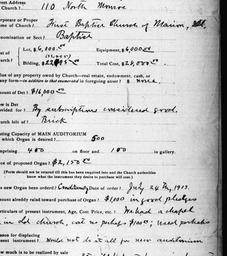 Street Address
of Church } 110 North Monroe
Corporate or Proper
Name of Church } First Baptist Church of Marion,
Denomination or Sect } Baptist
Lot, $6,000.00 Equipment, $6000.00
Building, Total Cost,
Value of any property owned by Church—real estate, endowment, cash, or
any form—in addition to that enumerated in foregoing sums? $ none.
Amount of Debt $16,000
How is Debt
provided for? By subscriptions considered good.
of Church? Brick
Seating Capacity of MAIN AUDITORIUM
for which Organ is desired? 500
Comprising 400 on floor and 100 in gallery.
Price of proposed Organ? $2,150
(Form should not be returned till this has been inquired into and the Church authorities
know what the instrument they desire to purchase will cost)
Is new Organ been ordered? Conditionally Date of order? July 24th, 1913.
Amount already raised toward purchase of Organ? $1000 in good pledges
Particulars of present instrument, Age, Cost Price, etc.? We had a chapel
in old church, cost us perhaps $100; used perhaps
Reason for displacing
present instrument? Would not do at all for new auditorium
How much is to be realized by sale